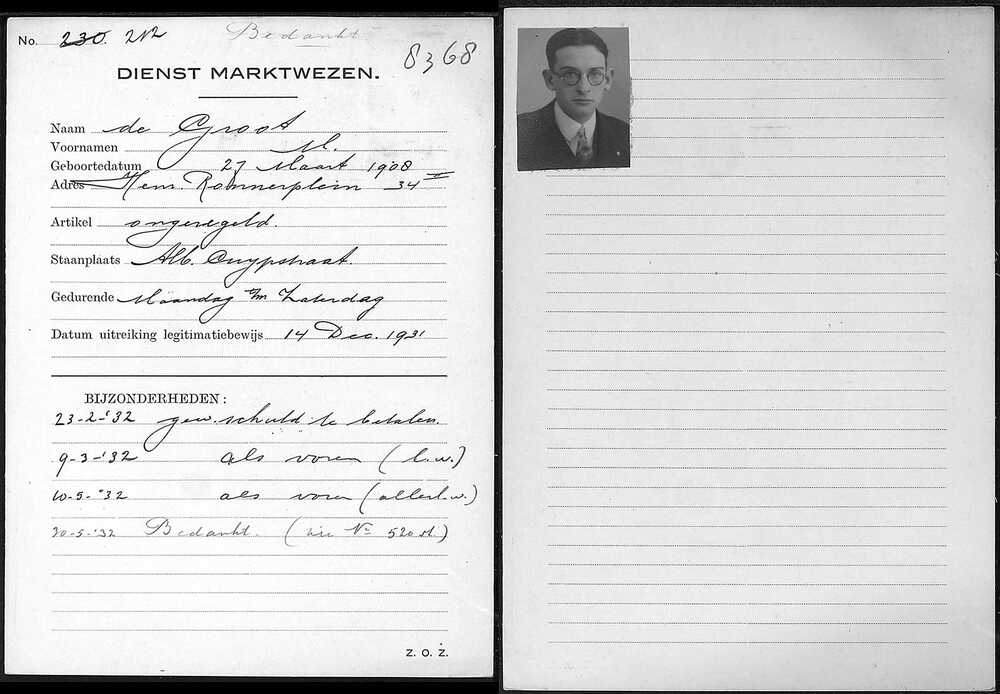 No. 230. 212
Bedankt
8368
DIENST MARKTWEZEN.
Naam de Groot
Voornamen M.
Geboortedatum 27 Maart 1908
Adres Henr. Ronnerplein 34 II
Artikel ongeregeld.
Staanplaats Alb. Cuypstraat.
Gedurende Maandag t/m Zaterdag
Datum uitreiking legitimatiebewijs 14 Dec. 1931
BIJZONDERHEDEN:
23-2-'32 gew. schuld te betalen.
9-3-'32 als voren (l.w.)
10-5-'32 als voren (allerl.w.)
20-5-'32 Bedankt. (zie No 520 st.)
Z. O. Z.